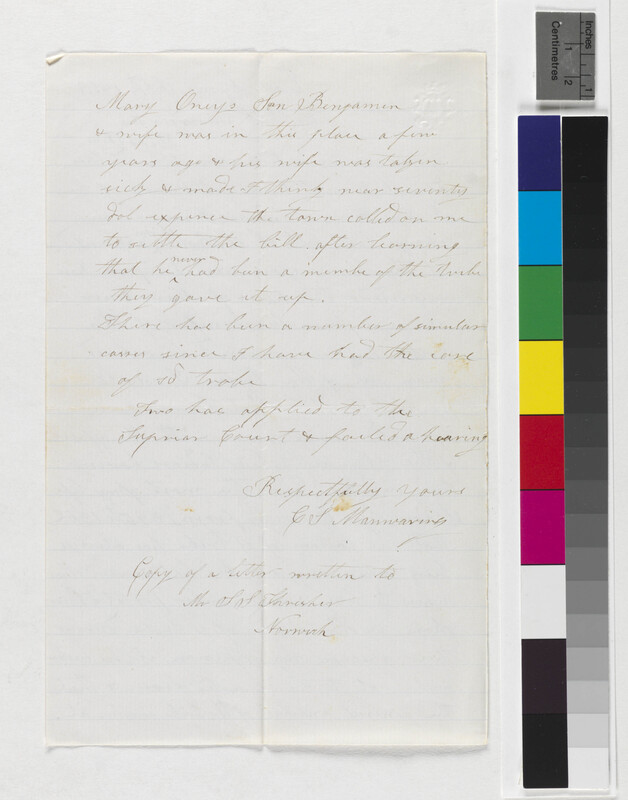 Mary Oneys Son Benjamen
& wife was in this place a few
years ago & his wife was taken
sick & made I think near seventy
dol expence the town called on me
to settle the bill. after learning
that he never had been a membe of the tribe
they gave it up.
There has been a number of simular
casses since I have had the care
of sd trabe
Two has applied to the
Suprior Court & failed a hearing
Respectfully yours
C S Manwaring
Copy of a letter written to
Mr S S Thresher
Norwich
Inches
1
Centimetres
1
2